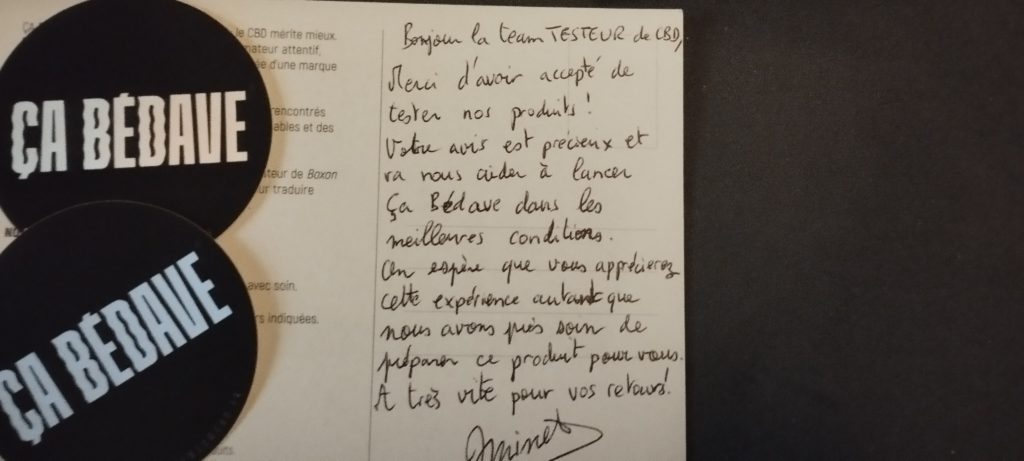 ÇA BÉDAVE
ÇA BÉDAVE
le CBD mérite mieux.
ateur attentif,
e d'une marque
rencontrés
ables et des
teur de Boxon
ur traduire
avec soin,
rs indiquées.
Bonjour la team TESTEUR de CBD,
Merci d'avoir accepté de
tester nos produits !
Votre avis est précieux et
va nous aider à lancer
Ça Bédave dans les
meilleures conditions.
On espère que vous apprécierez
cette expérience autant que
nous avons pris soin de
préparer ce produit pour vous.
A très vite pour vos retours!